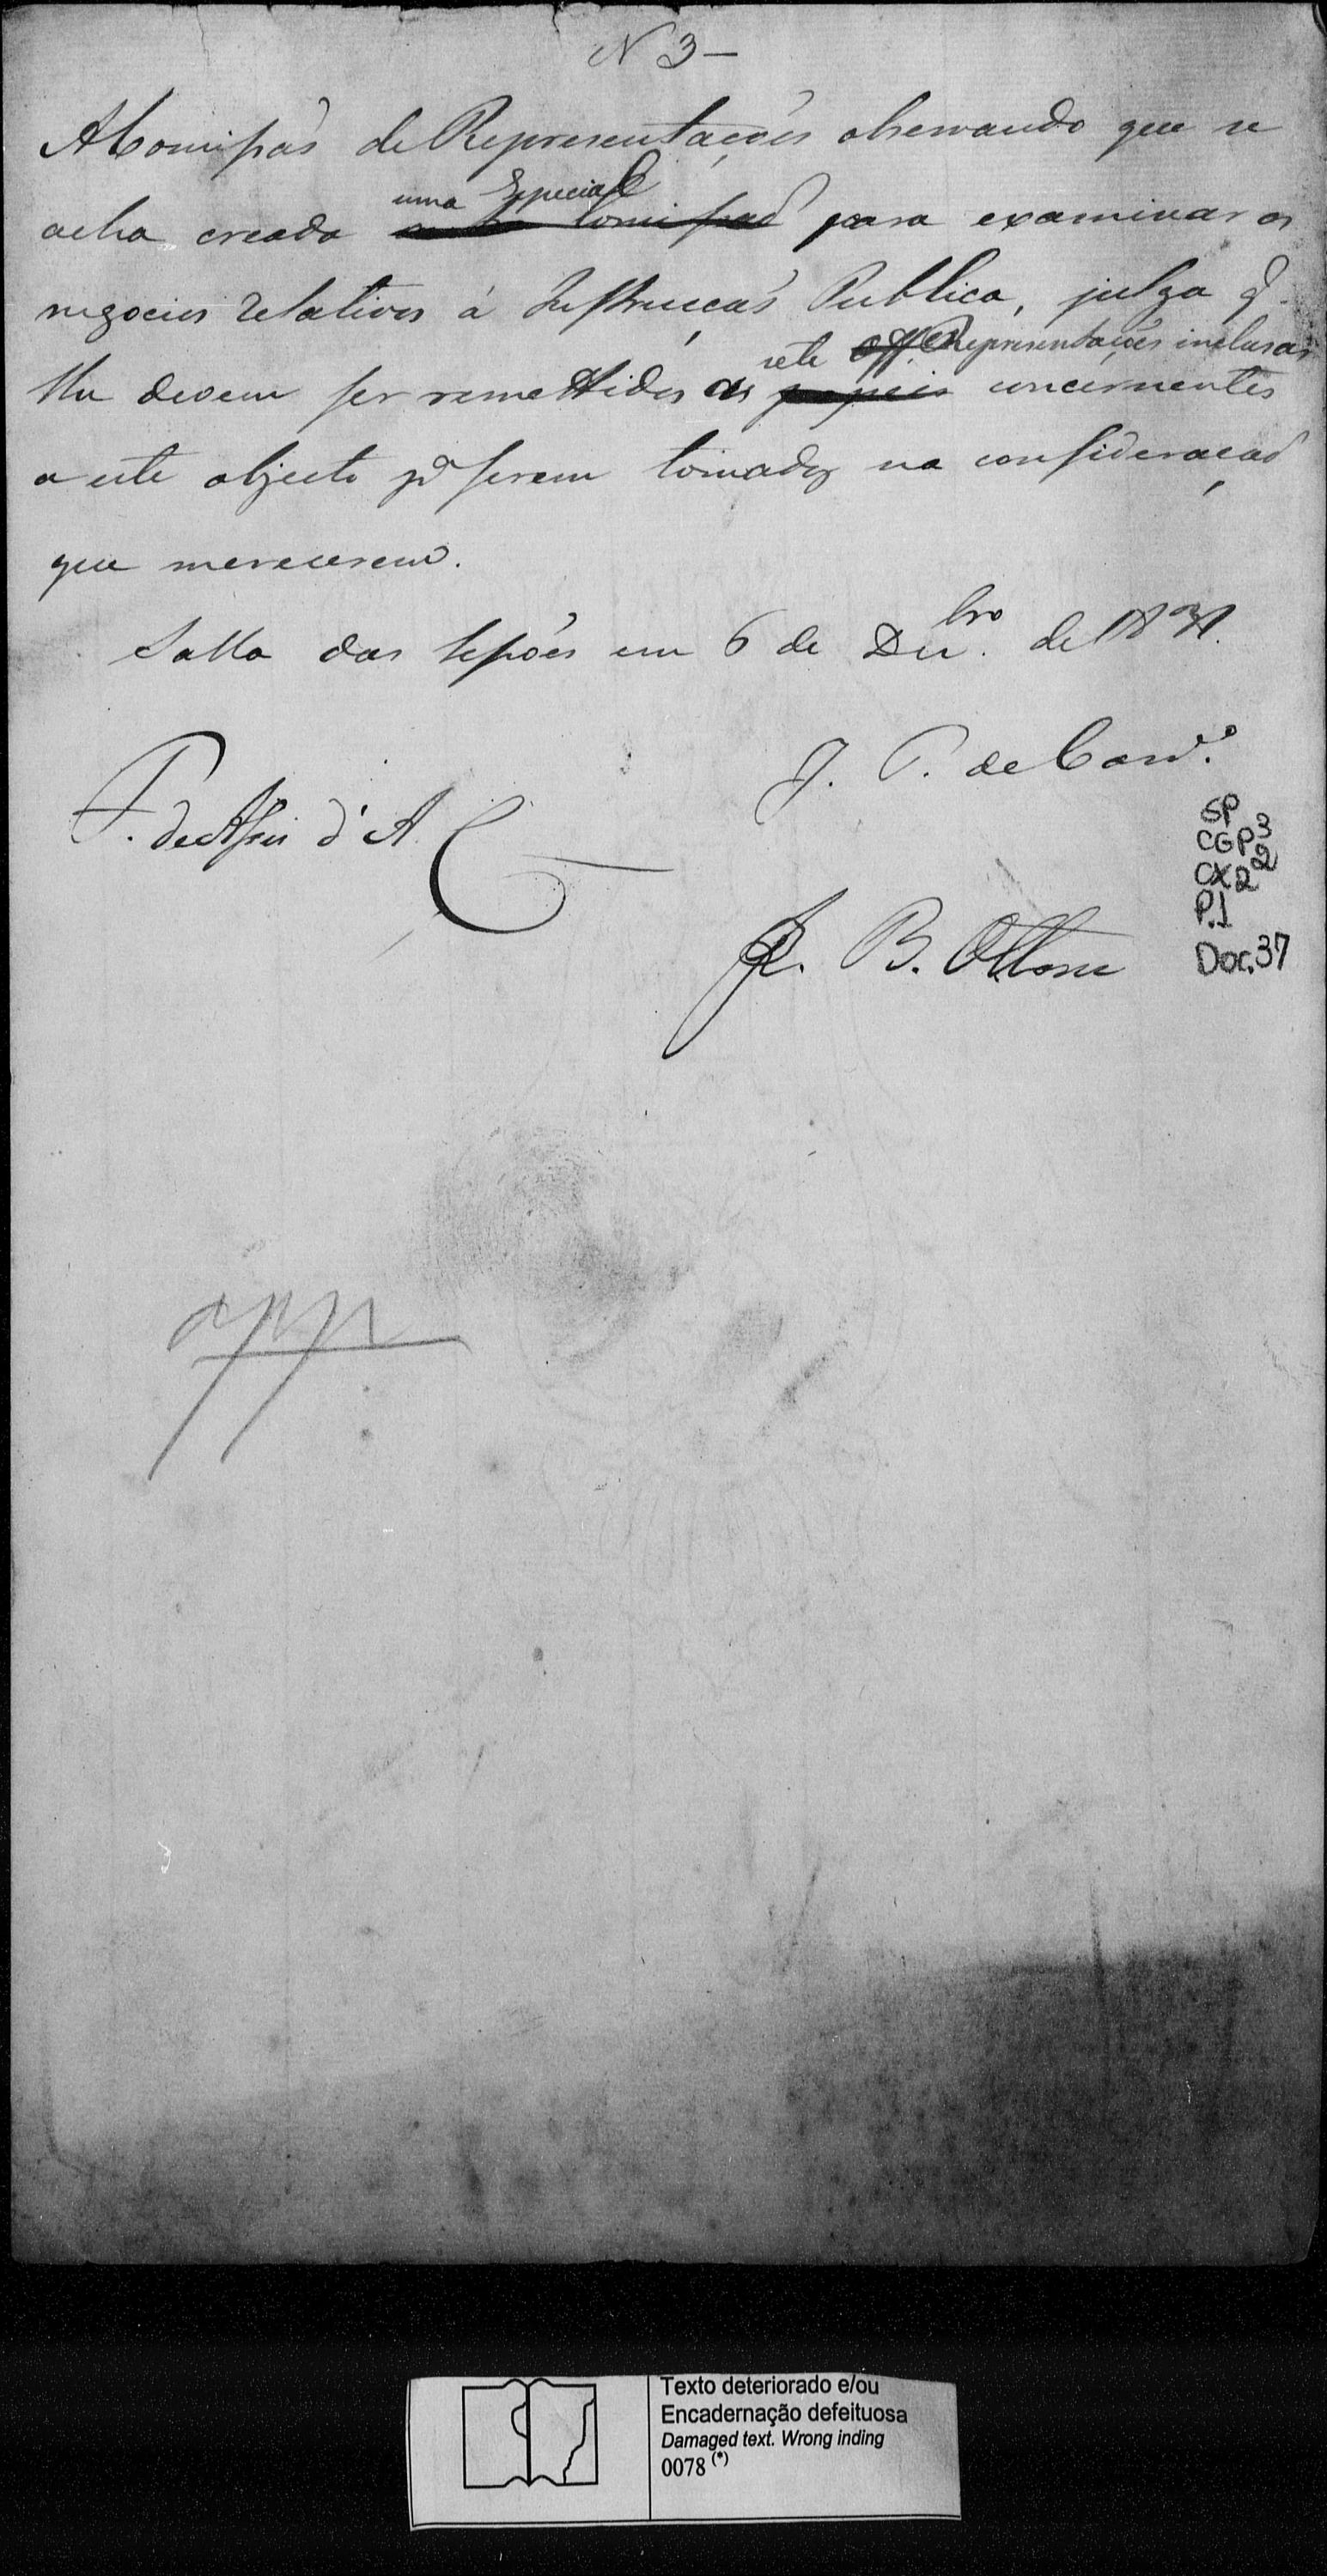 N 3 —
A Comissão de Representações observando que se
uma Especial
acha creada Comissão para examinar os
negocios relativos á Instrucção Publica, julga q̃
sete Off. Representações inclusas
lhe devem ser remettidos as papeis concernentes
a este objecto pª serem tomados na consideração
que merecerem.
Salla das Sessões em 6 de Dezbro. de 18
J. P. de Carvº.
F. de Assis d'A.
J. B. Ottoni
SP
CGP3
CX2 2
P.1
Doc.37
app
Texto deteriorado e/ou
Encadernação defeituosa
Damaged text. Wrong inding
0078 (*)